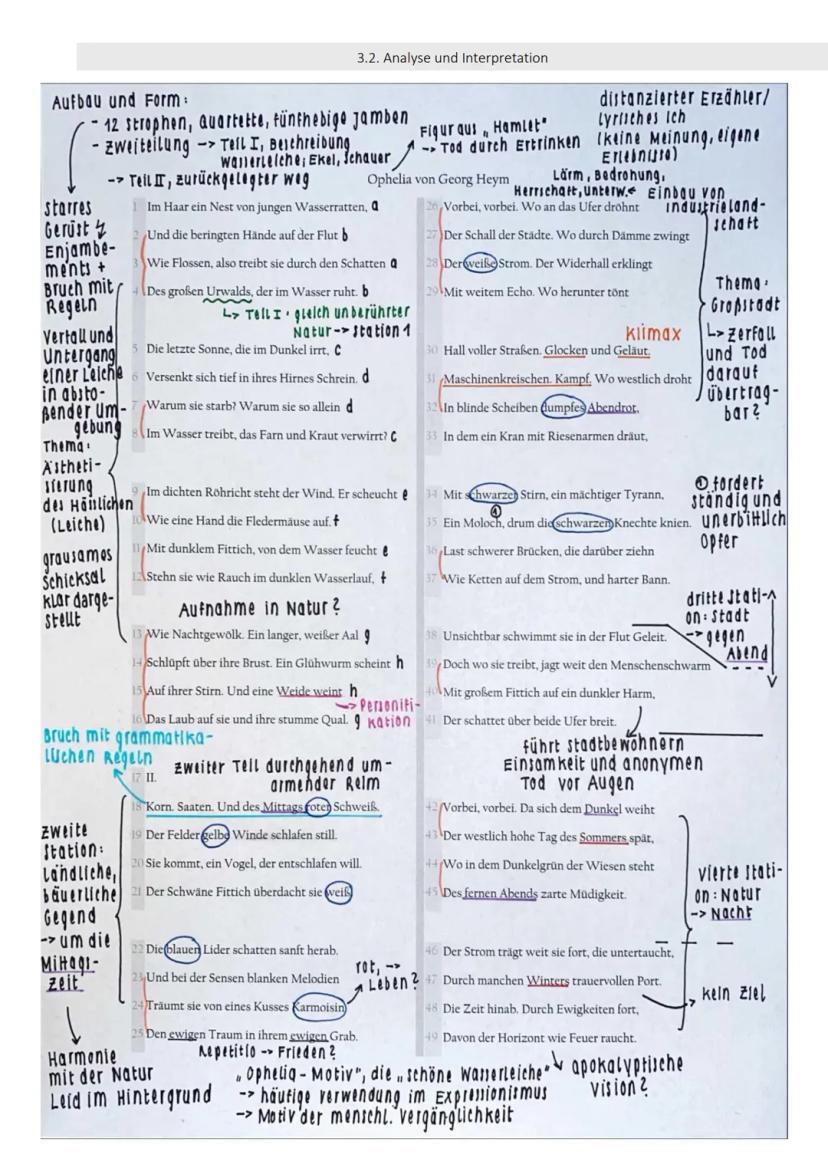 3.2. Analyse und Interpretation
Aufbau und Form:
- 12 Strophen, Quartette, fünfhebige Jamben
- Zweiteilung -> Teil I, Beschreibung
Wasserleiche; Ekel, Schauer
-> Teil II, zurückgelegter Weg
Figur aus „Hamlet"
-> Tod durch Ertrinken
distanzierter Erzähler/
lyrisches Ich
(keine Meinung, eigene
Erlebnisse)
Ophelia von Georg Heym
Lärm, Bedrohung,
Herrschaft, unterw.
Einbau von
Industrieland-
schaft
starres
Gerüst ↯
Enjambe-
ments +
Bruch mit
Regeln
1 Im Haar ein Nest von jungen Wasserratten, a
2 Und die beringten Hände auf der Flut b
3 Wie Flossen, also treibt sie durch den Schatten a
4 Des großen Urwalds, der im Wasser ruht. b
↳ Teil I: gleich unberührter
Natur -> Station 1
Verfall und
Untergang
einer Leiche
in absto-
ßender Um-
gebung
Thema:
Ästheti-
sierung
des Hässlichen
(Leiche)
grausames
Schicksal
klar darge-
stellt
5 Die letzte Sonne, die im Dunkel irrt, c
6 Versenkt sich tief in ihres Hirnes Schrein. d
7 Warum sie starb? Warum sie so allein d
8 Im Wasser treibt, das Farn und Kraut verwirrt? c
9 Im dichten Röhricht steht der Wind. Er scheucht e
10 Wie eine Hand die Fledermäuse auf. f
11 Mit dunklem Fittich, von dem Wasser feucht e
12 Stehn sie wie Rauch im dunklen Wasserlauf, f
Aufnahme in Natur?
13 Wie Nachtgewölk. Ein langer, weißer Aal g
14 Schlüpft über ihre Brust. Ein Glühwurm scheint h
15 Auf ihrer Stirn. Und eine Weide weint h
-> Personifi-
kation
16 Das Laub auf sie und ihre stumme Qual. g
Bruch mit grammatika-
lischen Regeln
zweiter Teil durchgehend um-
armender Reim
17 II.
18 Korn. Saaten. Und des Mittags roter Schweiß.
19 Der Felder gelbe Winde schlafen still.
20 Sie kommt, ein Vogel, der entschlafen will.
21 Der Schwäne Fittich überdacht sie weiß.
zweite
Station:
ländliche,
bäuerliche
Gegend
-> um die
Mittags-
zeit
22 Die blauen Lider schatten sanft herab.
23 Und bei der Sensen blanken Melodien
24 Träumt sie von eines Kusses Karmoisin
25 Den ewigen Traum in ihrem ewigen Grab.
rot, ->
Leben?
Repetitio -> Frieden?
Harmonie
mit der Natur
Leid im Hintergrund
26 Vorbei, vorbei. Wo an das Ufer dröhnt
27 Der Schall der Städte. Wo durch Dämme zwingt
28 Der weiße Strom. Der Widerhall erklingt
29 Mit weitem Echo. Wo herunter tönt
Thema:
Großstadt
↳ Zerfall
und Tod
darauf
übertrag-
bar?
Klimax
30 Hall voller Straßen. Glocken und Geläut.
31 Maschinenkreischen. Kampf. Wo westlich droht
32 In blinde Scheiben dumpfes Abendrot,
33 In dem ein Kran mit Riesenarmen dräut,
34 Mit schwarzer Stirn, ein mächtiger Tyrann,
35 Ein Moloch, drum die schwarzen Knechte knien.
36 Last schwerer Brücken, die darüber ziehn
37 Wie Ketten auf dem Strom, und harter Bann.
① fordert
ständig und
unerbittlich
Opfer
①
dritte Stati-
on: Stadt
-> gegen
Abend
38 Unsichtbar schwimmt sie in der Flut Geleit.
39 Doch wo sie treibt, jagt weit den Menschenschwarm
40 Mit großem Fittich auf ein dunkler Harm,
41 Der schattet über beide Ufer breit.
führt Stadtbewohnern
Einsamkeit und anonymen
Tod vor Augen
42 Vorbei, vorbei. Da sich dem Dunkel weiht
43 Der westlich hohe Tag des Sommers spät,
44 Wo in dem Dunkelgrün der Wiesen steht
45 Des fernen Abends zarte Müdigkeit.
vierte Stati-
on: Natur
-> Nacht
46 Der Strom trägt weit sie fort, die untertaucht,
47 Durch manchen Winters trauervollen Port.
48 Die Zeit hinab. Durch Ewigkeiten fort,
49 Davon der Horizont wie Feuer raucht.
kein Ziel
apokalyptische
Vision?
„Ophelia-Motiv", die „schöne Wasserleiche"
-> häufige Verwendung im Expressionismus
-> Motiv der menschl. Vergänglichkeit